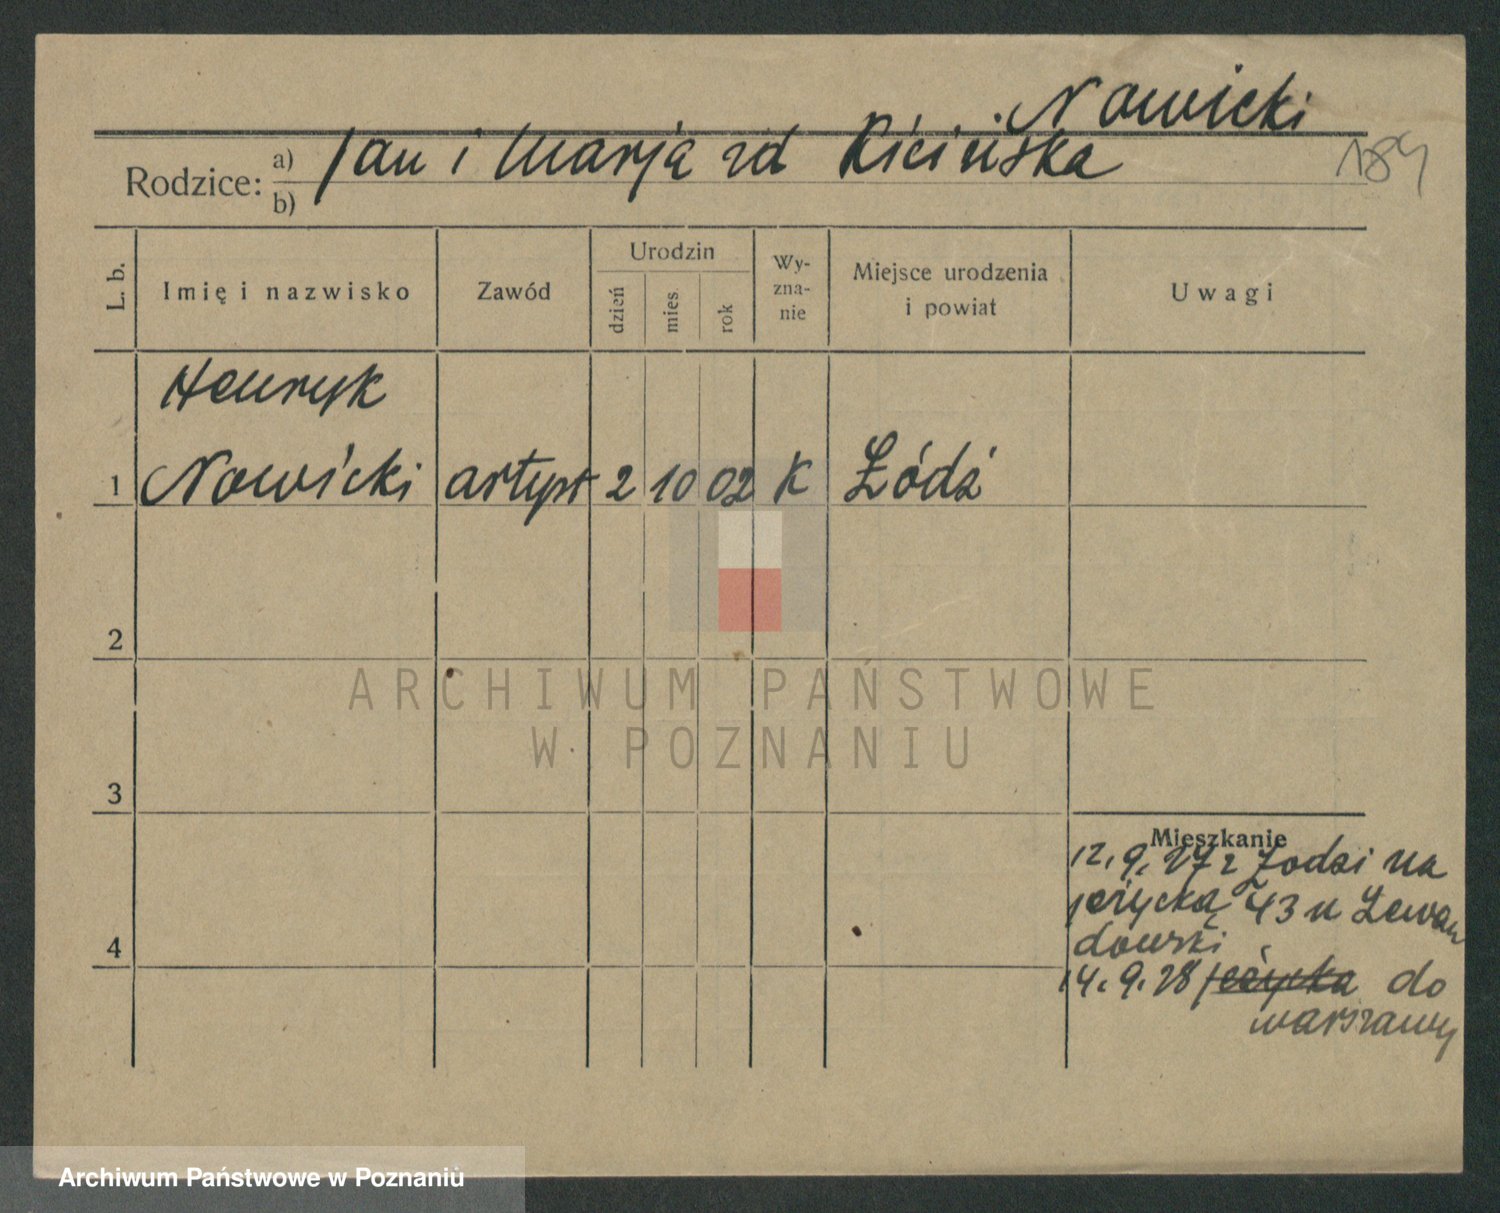 Nowicki
Rodzice: a) Jan i Marja zd Kicińska
b)
184
L. b.
Imię i nazwisko
Zawód
Urodzin
dzień
mies.
rok
Wy-
zna-
nie
Miejsce urodzenia
i powiat
Uwagi
Henryk
1 Nowicki artyst 2 10 02 K Łódź
2
3
4
ARCHIWUM PAŃSTWOWE
W POZNANIU
Mieszkanie
12.9.27 z Łodzi na
Jeżycką 43 u Lewan
dowski
14.9.28 Jeżycka do
Warszawy
Archiwum Państwowe w Poznaniu